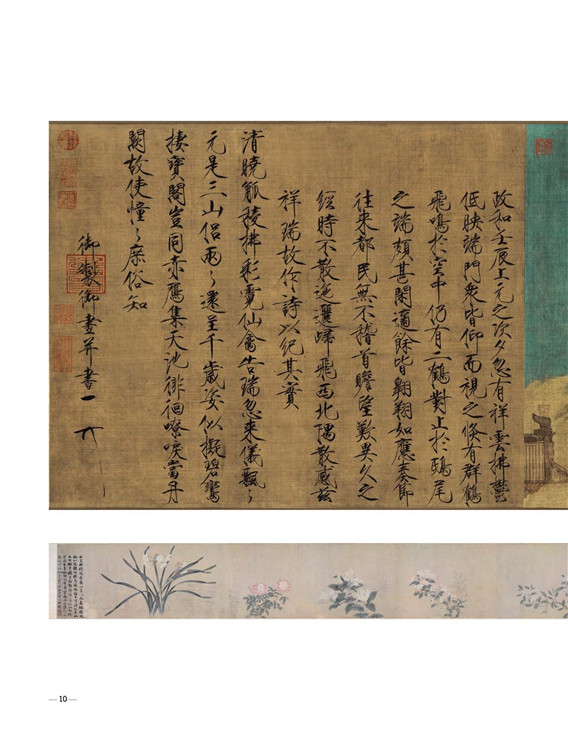 政和壬辰上元之次夕忽有祥雲拂鬱
低映端門衆皆仰而視之倏有群鶴
飛鳴於空中仍有二鶴對止於鴟尾
之端頗甚閑適餘皆翱翔如應奏節
往來都民無不稽首瞻望歎異久之
經時不散迤邐歸飛西北隅散感茲
祥瑞故作詩以紀其實
清曉觚稜拂彩霓仙禽告瑞忽來儀飄〻
元是三山侶兩〻還呈千歲姿似擬碧鸞
棲寶閣豈同赤鴈集天池徘徊嘹唳當丹
闕故使憧〻庶俗知
御製御畫并書
10